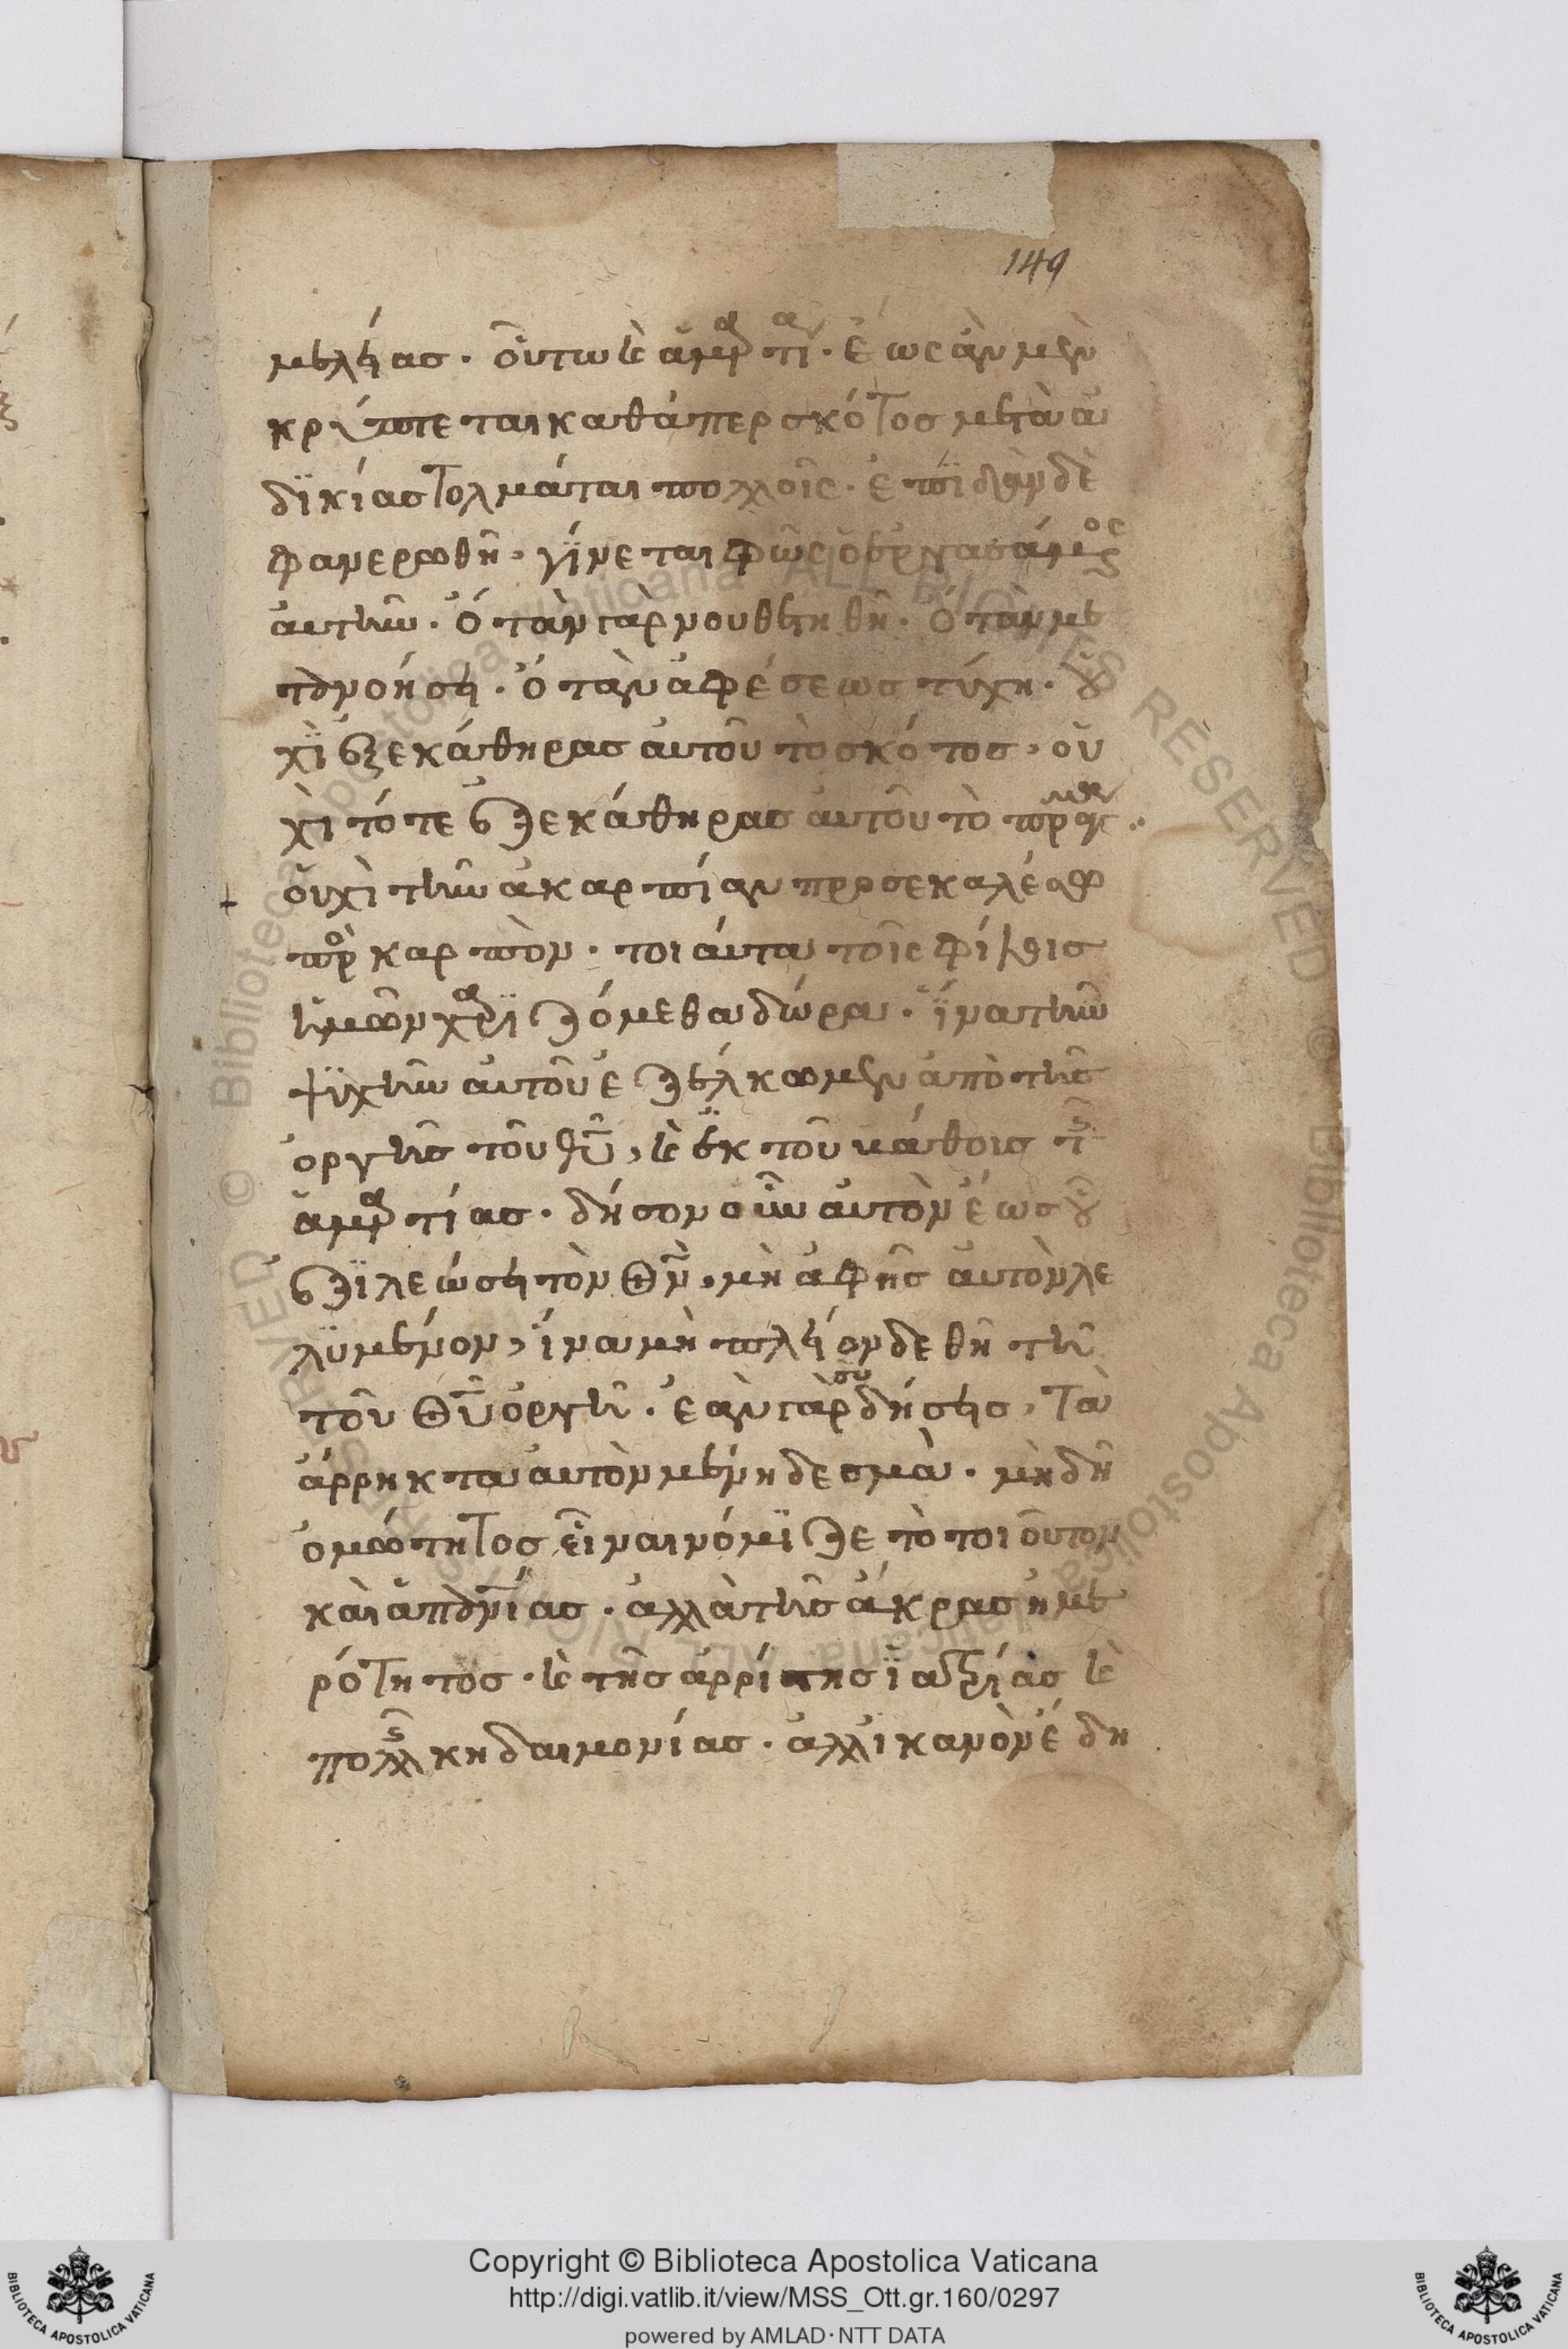 149
μελείας · οὕτω καὶ ἁμαρτία · ἕως ἂν μὲν
κρύπτεται καθάπερ σκότος μετὰ ἀ
δϊκίας τολμάται πολλοῖς · ἐπϊδὰν δὲ
φανερωθῆ · γΐνεται φῶς ὁ ἐργασάμενος
αυτὴν · ὅταν γὰρ νουθετηθῆ · ὅταν με
τανοήσει · ὅταν ἀφέσεως τύχη · οὐ
χῒ ἐξεκάθηρας αυτοῦ τὸ σκότος, οὐ
χὶ τότε ἐξεκάθηρας αὐτοῦ τὸ
οὐχὶ τὴν ἀκαρπίαν προσεκαλέσω
πρὸς καρπὸν · τοιαύτα τοῖς φίλοις
ἡμῶν χαρϊζόμεθα δώρα · ἵνα τὴν
ψϋχὴν αυτοῦ ἐξέλκωμεν ἀπὸ τῆς
ὀργῆς τοῦ θυ, καὶ ἐκ τοῦ βάθοις τῆς
ἁμαρτίας · δήσον οὖν αυτὸν ἕως οὗ
ἐξϊλεώσει τὸν Θν, μὴ ἀφῆς αυτὸν λε
λϋμένον, ἵνα μὴ πλεῖον δεθῆ τῆ
τοῦ Θυ ὀργῆ · ἐὰν γὰρ σὺ δήσεις, τὰ
άρρηκτα αυτὸν μένη δεσμὰ · μὴ δὴ
ὁμότητος εἶναι νόμϊζε τὸ τοιοῦτον
καὶ ἀπανίας · ἀλλὰ τῆς ἄκρας ημε
ρότητος · καὶ τῆς ἀρρίστης ϊατρίας καὶ
πολλῆς κηδαιμονίας · ἀλλ ικανὸν έδη